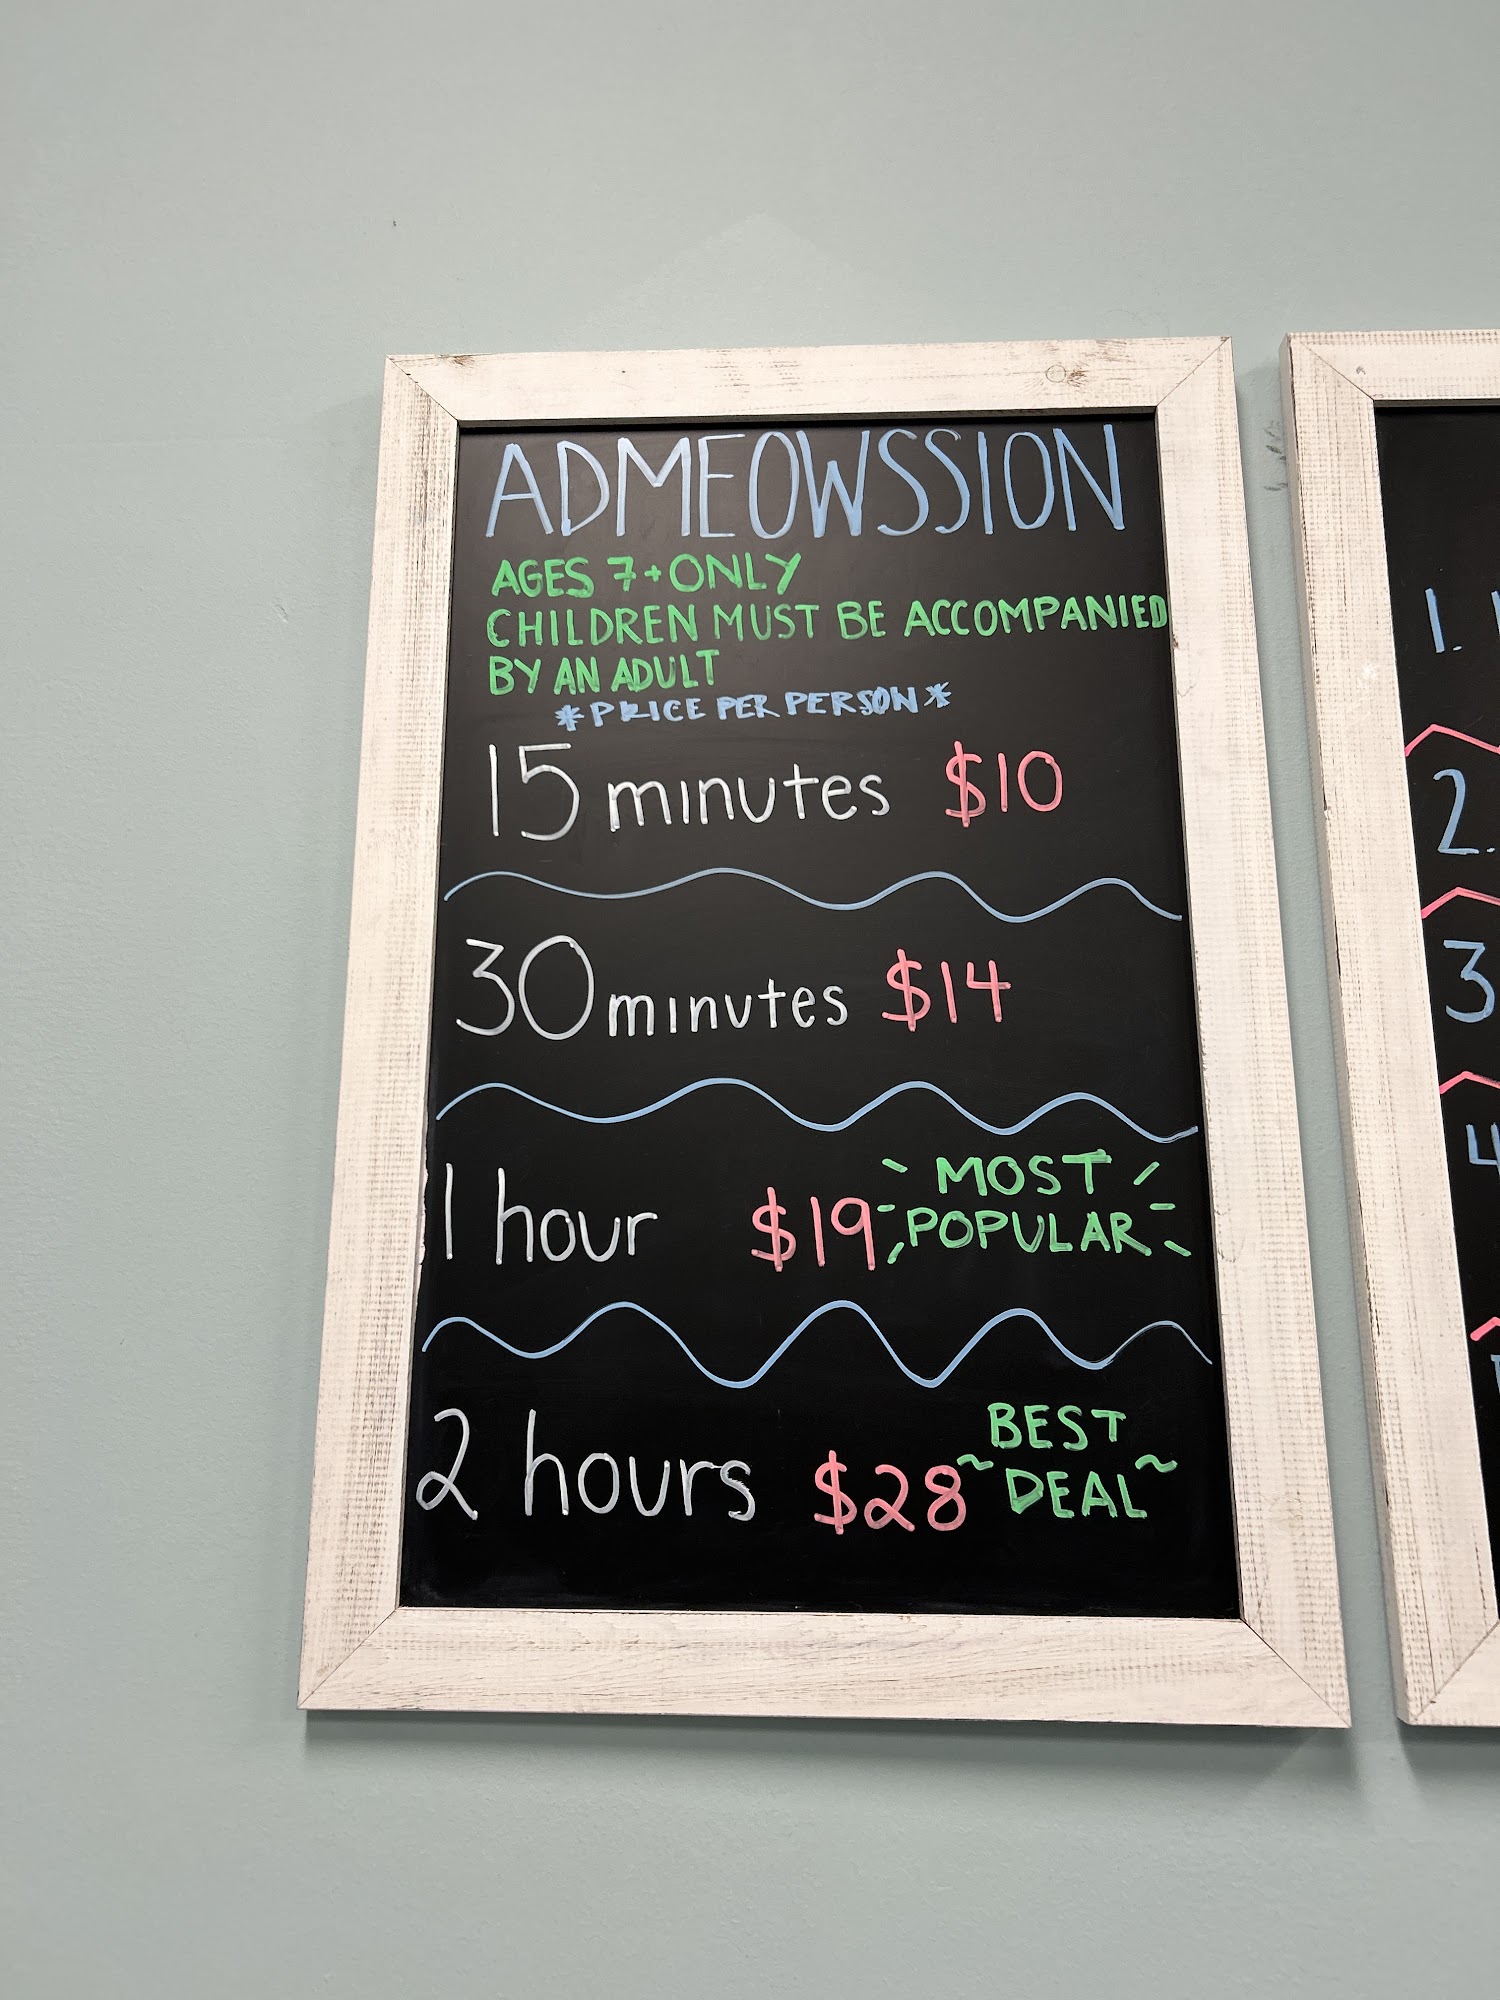 ADMEOWSSION
AGES 7+ ONLY
CHILDREN MUST BE ACCOMPANIED
BY AN ADULT
*PRICE PER PERSON*
15 minutes $10
30 minutes $14
1 hour $19 MOST
POPULAR
2 hours $28 BEST
~DEAL~
1.
2.
3
4